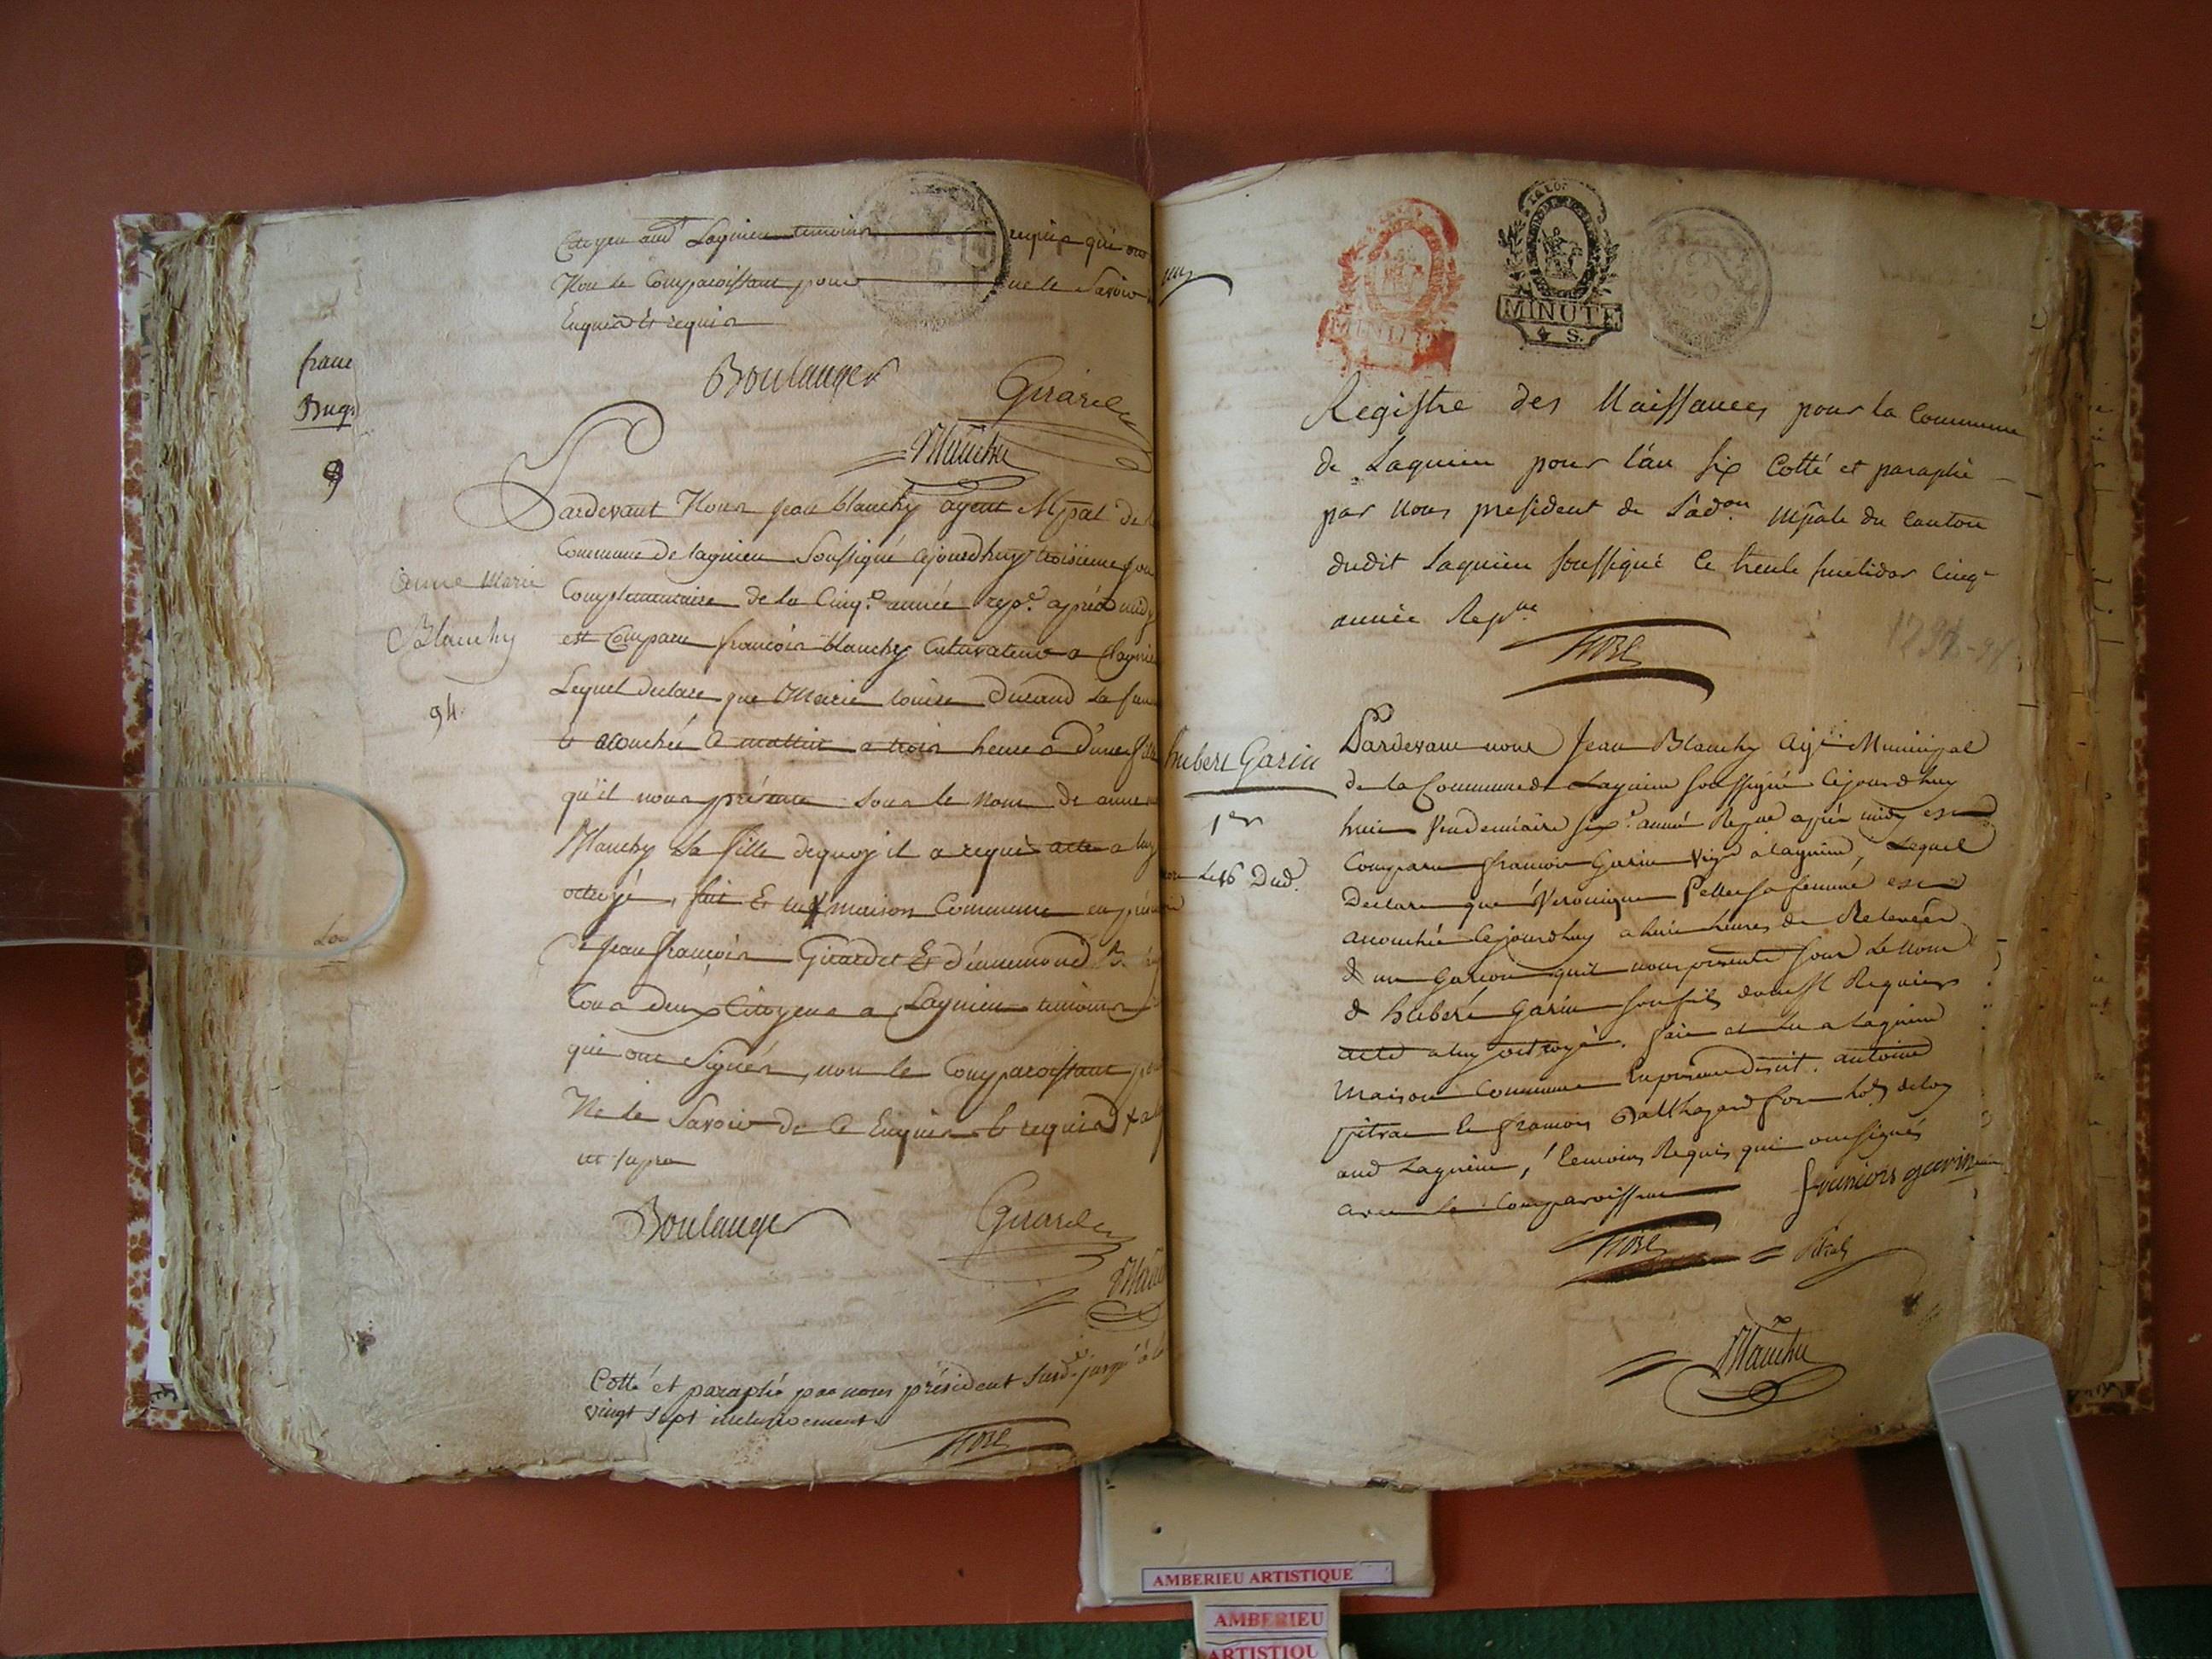 Citoyen aud Lagnieu temoins requis qui ont
Non le Comparoissant pour ne le Savoir
Enquis et requis
Boulanger
Girardet
Blanchy
franc
Bug
9
Pardevant Nous Jean blanchy agent Mpal de
Commune de lagnieu Soussigné cejourdhuy troisieme jour
Complemmentaire de la Cinq.e année rep.e après midy
est Comparu françois blanchy Cultivateur a lagnieu
Anne Marie
Blanchy
94
Lequel declare que Marie louise Durand sa fem
a acouchée ce mattin a trois heures d'une fille
qu'il nous présente sous le nom de anne m
Blanchy sa fille dequoy il a requis acte a luy
octroyé, fait & lu maison Commune en présence
de Jean françois Girardet & d'ennemond B
tous deux Citoyens a Lagnieu temoins
qui ont Signés, non le Comparoissant pour
Ne le Savoir de ce Enquis & requis
ut supra
Boulanger
Girardet
Cotté et paraphé par nous président susd. jusqu'à la
vingt sept inclusivement.
MINUTE
MINUTE
4 S.
Registre des Naissances pour la Commune
de Lagnieu pour l'an six Cotté et paraphé
par nous président de l'ad.on Mpale du Canton
dudit Lagnieu soussigné le trente fructidor Cinq.e
année Rep.ne
hubert Garin
1er
mort le 16 Dud.
Pardevant nous Jean Blanchy Agt Municipal
de la Commune de Lagnieu soussigné Cejourdhuy
huit Vendemiaire six.e année Repne après midy est
Comparu françois Garin Vign a lagnieu, Lequel
Declare que Veronique Pellet sa femme est
acouchée Cejourdhuy a huit heures de Relevée
d un Garcon quil nous presente sous Le nom
d hubert Garin son fils dont il Requiers
acte a luy octroyé. fait et lu a lagnieu
maison Commune En présence de cit. antoine
pitrat Et françois Balthazard
aud Lagnieu, temoins Requis qui ont signés
avec le Comparoissant
françois garin
Pitrat
Blanchy
AMBERIEU ARTISTIQUE
AMBERIEU
ARTISTIQU